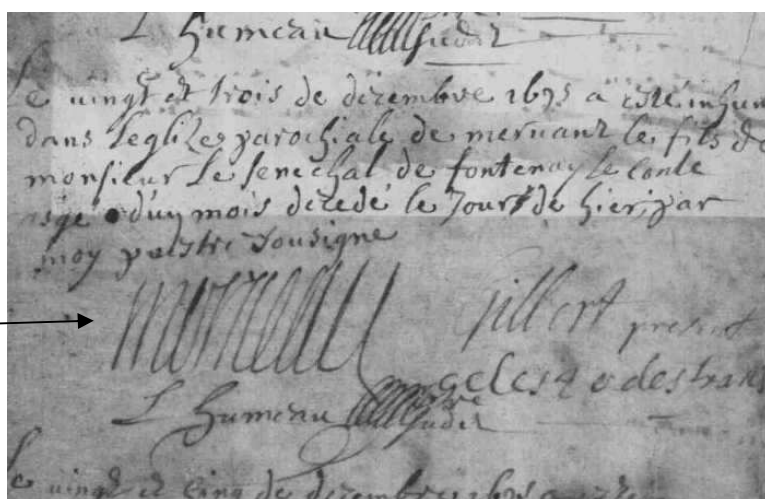 L Humeau
Le vingt et trois de décembre 1695 a esté inhum
dans leglize parochiale de mervant le fils de
monsieur Le Senechal de fontenay le conte
asgé d'un mois décedé le Jour de hier par
moy prestre Sousigne
moreau Gillbert present
L Humeau
Le vingt et cinq de décembre 1695 a